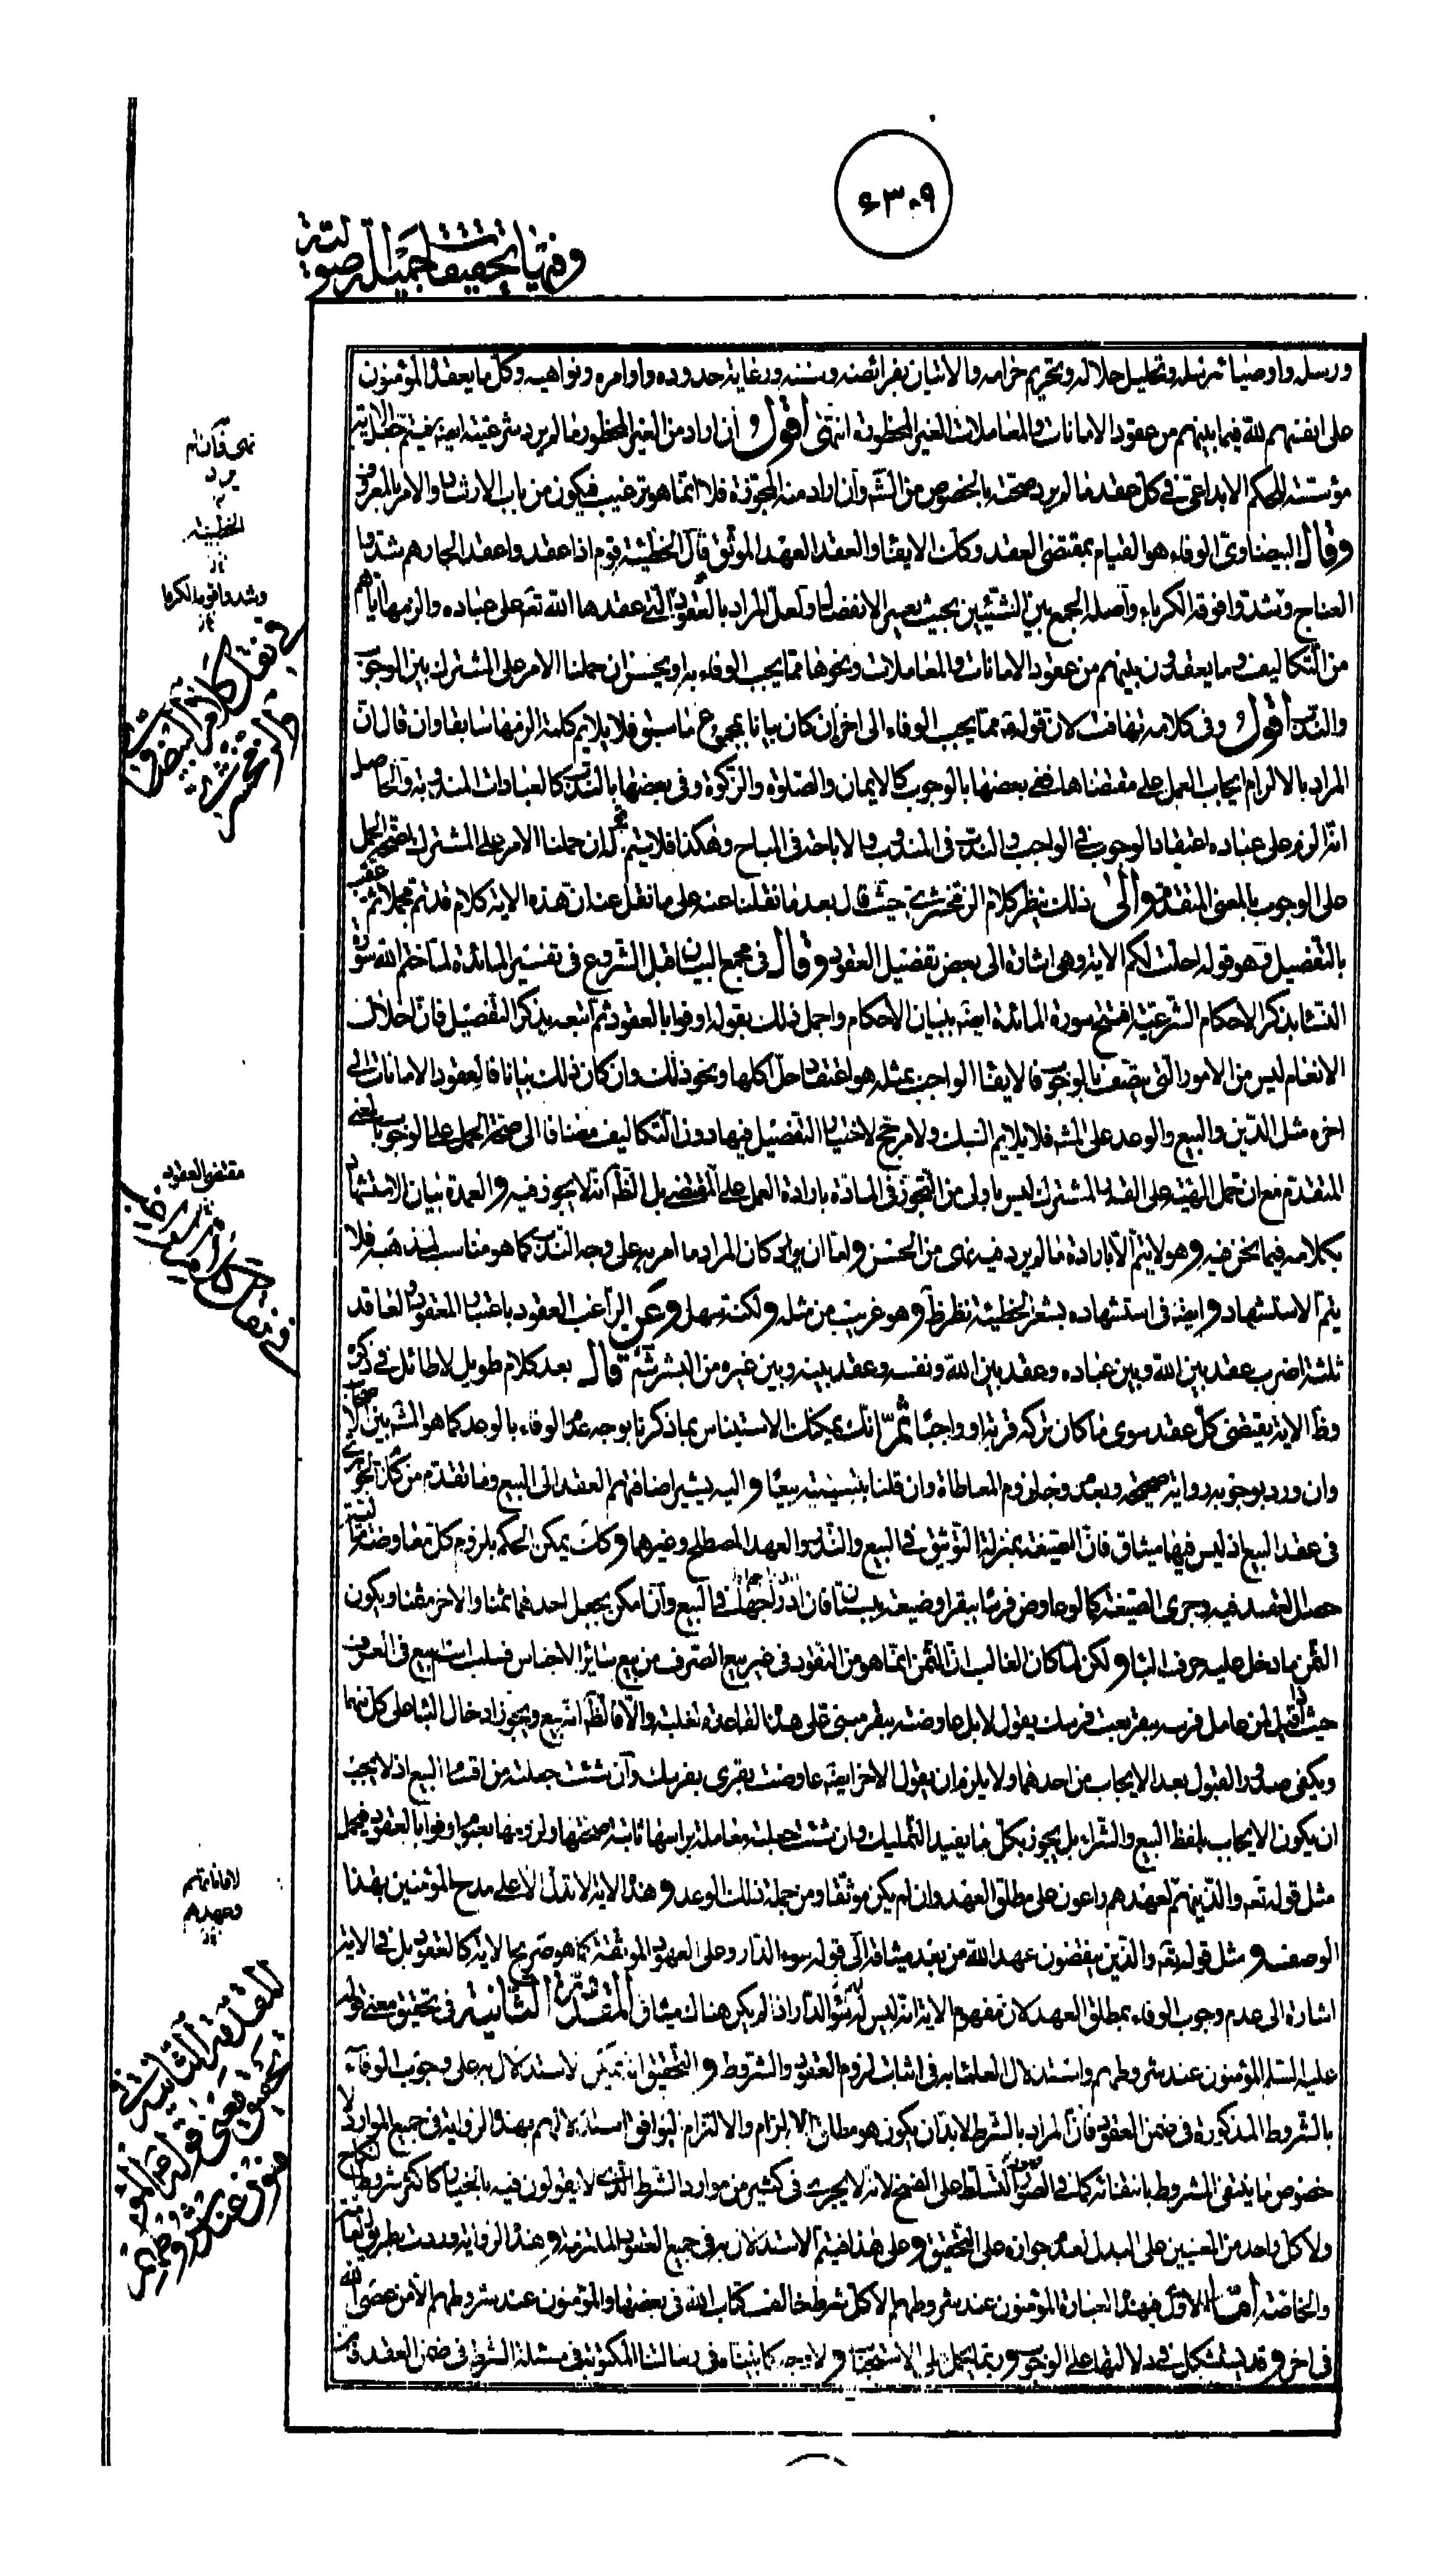 وفيها تحقيقات جميلة
ورسله واوصيائه وتحليل حلاله وتحريم حرامه والاتيان بفرائضه وسننه ورعاية حدوده واوامره ونواهيه وكل ما يعقده المؤمنون
على انفسهم لله فيما بينهم من عقود الامانات والمعاملات الغير المحظورة انتهى اقول ان اراد من الغير المحظور ما لم يرد شرعيته
مؤسسته للحكم الابداعي في كل عقد ما لم يرد صحته بالخصوص من الش وان اراد منه المجوزة فلا انما هو ترغيب فيكون من باب الارشاد والامر بالمعروف
وقال البيضاوي الوفاء هو القيام بمقتضى العقد وكك الايفاء والعقد العهد الموثق قال الحطيئة قوم اذا عقدوا عقدا لجارهم شدوا
العناج وشدوا فوقه الكربا، واصله الجمع بين الشيئين بحيث يعسر الانفصال ولعل المراد بالعقود التي عقدها الله تعه على عباده والزمها اياهم
من التكاليف وما يعقدون بينهم من عقود الامانات والمعاملات ونحوها مما يجب الوفاء به او يحسن ان حملنا الامر على المشترك بين الوجوب
والندب اقول وفي كلامه تهافت لان قوله مما يجب الوفاء الى اخره ان كان بيانا لمجموع ما سبق فلا يلايم كلمة الزمها سابقا وان قال ان
المراد بالالزام ايجاب العمل على مقتضاها ففي بعضها بالوجوب كالايمان والصلوة والزكوة وفي بعضها بالندب كالعبادات المندوبة والحاصل
انه الزم على عباده اعتقاد الوجوب في الواجب والندب في المندوب والاباحة في المباح وهكذا فلا يتم قوله ان حملنا الامر على المشترك لصحة الحمل
على الوجوب بالمعنى المتقدم والى ذلك ينظر كلام الزمخشري حيث قال بعد ما نقلنا عنه على ما نقل عنه ان هذه الاية كلام قدم مجملا ثم عقب
بالتفصيل وهو قوله احلت لكم الاية وهي اشارة الى بعض تفصيل العقود وقال في مجمع البيان قبل الشروع في تفسير المائدة لما ختم الله سورة
النساء بذكر الاحكام الشرعية افتتح سورة المائدة ايضه ببيان الاحكام واجمل ذلك بقوله اوفوا بالعقود ثم اتبعه بذكر التفصيل فان احلال
الانعام ليس من الامور التي يتصف بالوجوب فالايفاء الواجب بمثله هو اعتقاد حل اكلها ونحو ذلك وان كان ذلك بيانا فالعقود الامانات الى
اخره مثل الدين والبيع والوعد على المشه فلا يلايم الندب ولا مرجح لاختيار التفصيل فيها دون التكاليف مضافا الى صحة الحمل على الوجوب بالمعنى
المتقدم مع ان حمل الهيئة على القدر المشترك ليس باولى من التجوز في المادة بارادة العمل على المقتضى بل الظ انه لا يجوز فيه والعمدة بيان الاستشهاد
بكلامه فيما نحن فيه وهو لا يتم الا بارادة ما لم يرد فيه نهي من الحسن واما ان كان المراد ما امر به على وجه الندب كما هو مناسب لمذهبه فلا
يتم الاستشهاد وايضه في استشهاده بشعر الحطيئة نظر ظ وهو غريب من مثله ولكنه سهل وعن الراغب العقود باعتبار المعقود والعاقد
ثلثة اضرب عقد بين الله وبين عباده وعقد بين الله ونفسه وعقد بينه وبين غيره من البشر ثم قال بعد كلام طويل لا طائل في ذكره
وظ الاية يقتضي كل عقد سوى ما كان تركه قربة او واجبا ثم انك يمكنك الاستيناس بما ذكرنا بوجه عدم الوفاء بالوعد كما هو المشه بين
وان ورد بوجوبه رواية صحيحة وبعدم لزوم المعاطاة وان قلنا بتسميته بيعا واليه يشير اضافتهم العقد الى البيع وما تقدم من كلام
في عقد البيع اذ ليس فيها ميثاق فان الصيغة بمنزلة التوثيق في البيع والنذر والعهد المصطلح وغيرها وكك يمكن الحكم بلزوم كل معاوضة
حصل العقد فيه وجرى الصيغة كما لو عاوض فرسا ببقر او ضيعة ببستان فان اندراجها في البيع وان امكن بجعل احدهما ثمنا والاخر مثمنا ويكون
الثمن ما دخل عليه حرف الباء ولكن لما كان الغالب ان الثمن انما هو من النقود في غير بيع الصرف من بيع سائر الاجناس فسلب اسم البيع في العرف
حيث اذا قيل لمن عامل فرسه ببقر بعت فرسك يقول لا بل عاوضته ببقر مبني على هذا القاعدة تغليبه والا فالظ انه بيع ويجوز ادخال الباء على كل منهما
ويكفي صدور القبول بعد الايجاب من احدهما ولا يلزم ان يقول الاخر ايضه عاوضت بقري بفرسك وان شئت جعلته من اقسام البيع اذ لا يجب
ان يكون الايجاب بلفظ البيع والشراء بل يجوز بكل ما يفيد التمليك وان شئت جعلته معاملة براسها ثابتة صحتها ولزومها بعموم اوفوا بالعقود فيحمل
مثل قوله تعه والذين هم لعهدهم راعون على مطلق العهد وان لم يكن موثقا ومن جملة ذلك الوعد وهذه الاية لا تدل الا على مدح المؤمنين بهذا
الوصف ومثل قوله تعه والذين ينقضون عهد الله من بعد ميثاقه الى قوله سوء الدار وعلى العهود الموثقة كما هو صريح الاية كالعقود بل في الاية
اشارة الى عدم وجوب الوفاء بمطلق العهد لان مفهوم الاية انه ليس لهم سوء الدار اذا لم يكن هناك ميثاق المقدمة الثانية في تحقيق معنى قوله
عليه السلم المؤمنون عند شروطهم واستدلال العلماء به في اثبات لزوم العقود والشروط والتحقيق انه يمكن الاستدلال به على وجوب الوفاء
بالشروط المذكورة في ضمن العقود فان المراد بالشرط لا بد ان يكون هو مطلق الالزام والالتزام ليوافق استدلالهم بهذه الرواية في جميع الموارد لا
خصوص ما ينتفي المشروط بانتفائه كما في التسلط على الفسخ لانه لا يجري في كثير من موارد الشرط الذي لا يقولون فيه بالخيار كاكثر شروط النكاح
ولا كل واحد من المعنيين على البدل لعدم جوازه على التحقيق وعلى هذا فيتم الاستدلال به في جميع العقود الملتزمة وهذه الرواية وردت بطريق العامة
والخاصة اما الاول فبهذه العبارة المؤمنون عند شروطهم الا كل شرط خالف كتاب الله في بعضها والمؤمنون عند شروطهم الا من عصى الله
في اخر وقد يستشكل في دلالتها على الوجوب وربما يحمل على الاستحباب ولا وجه كما بيناه في رسالتنا المكتوبة في مسئلة الشرط في ضمن العقد
الحطيئة
وشدوا فوقه الكربا
في نقل كلام البيضاوي والزمخشري
مقتضى العقود
لاماناتهم
وعهدهم
المقدمة الثانية في
تحقيق معنى قوله المؤمنون
عند شروطهم